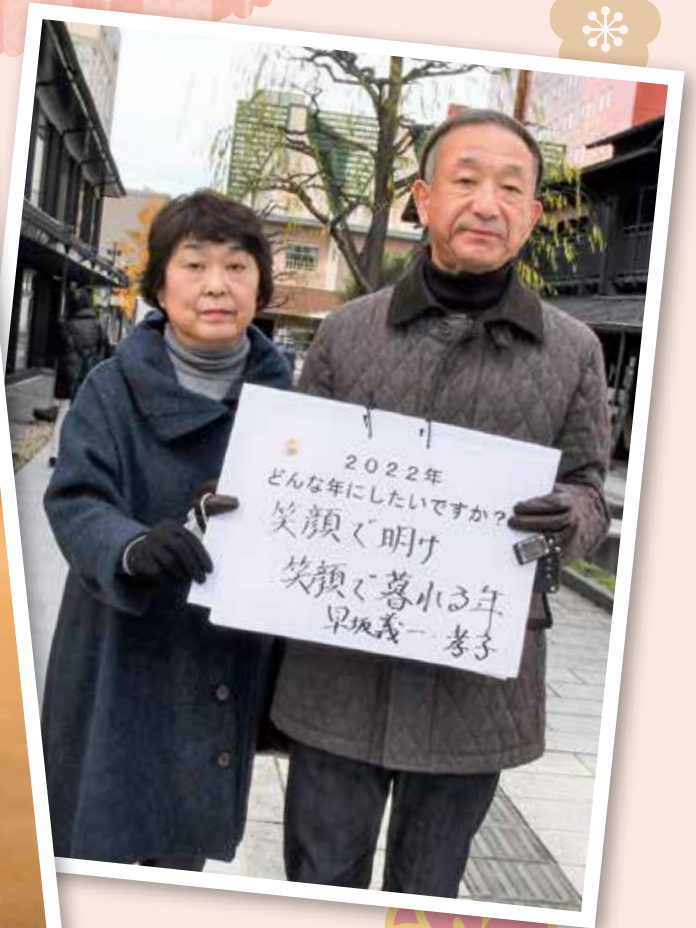 2022年
どんな年にしたいですか?
笑顔で明け
笑顔で暮れる年
早坂義一・孝子